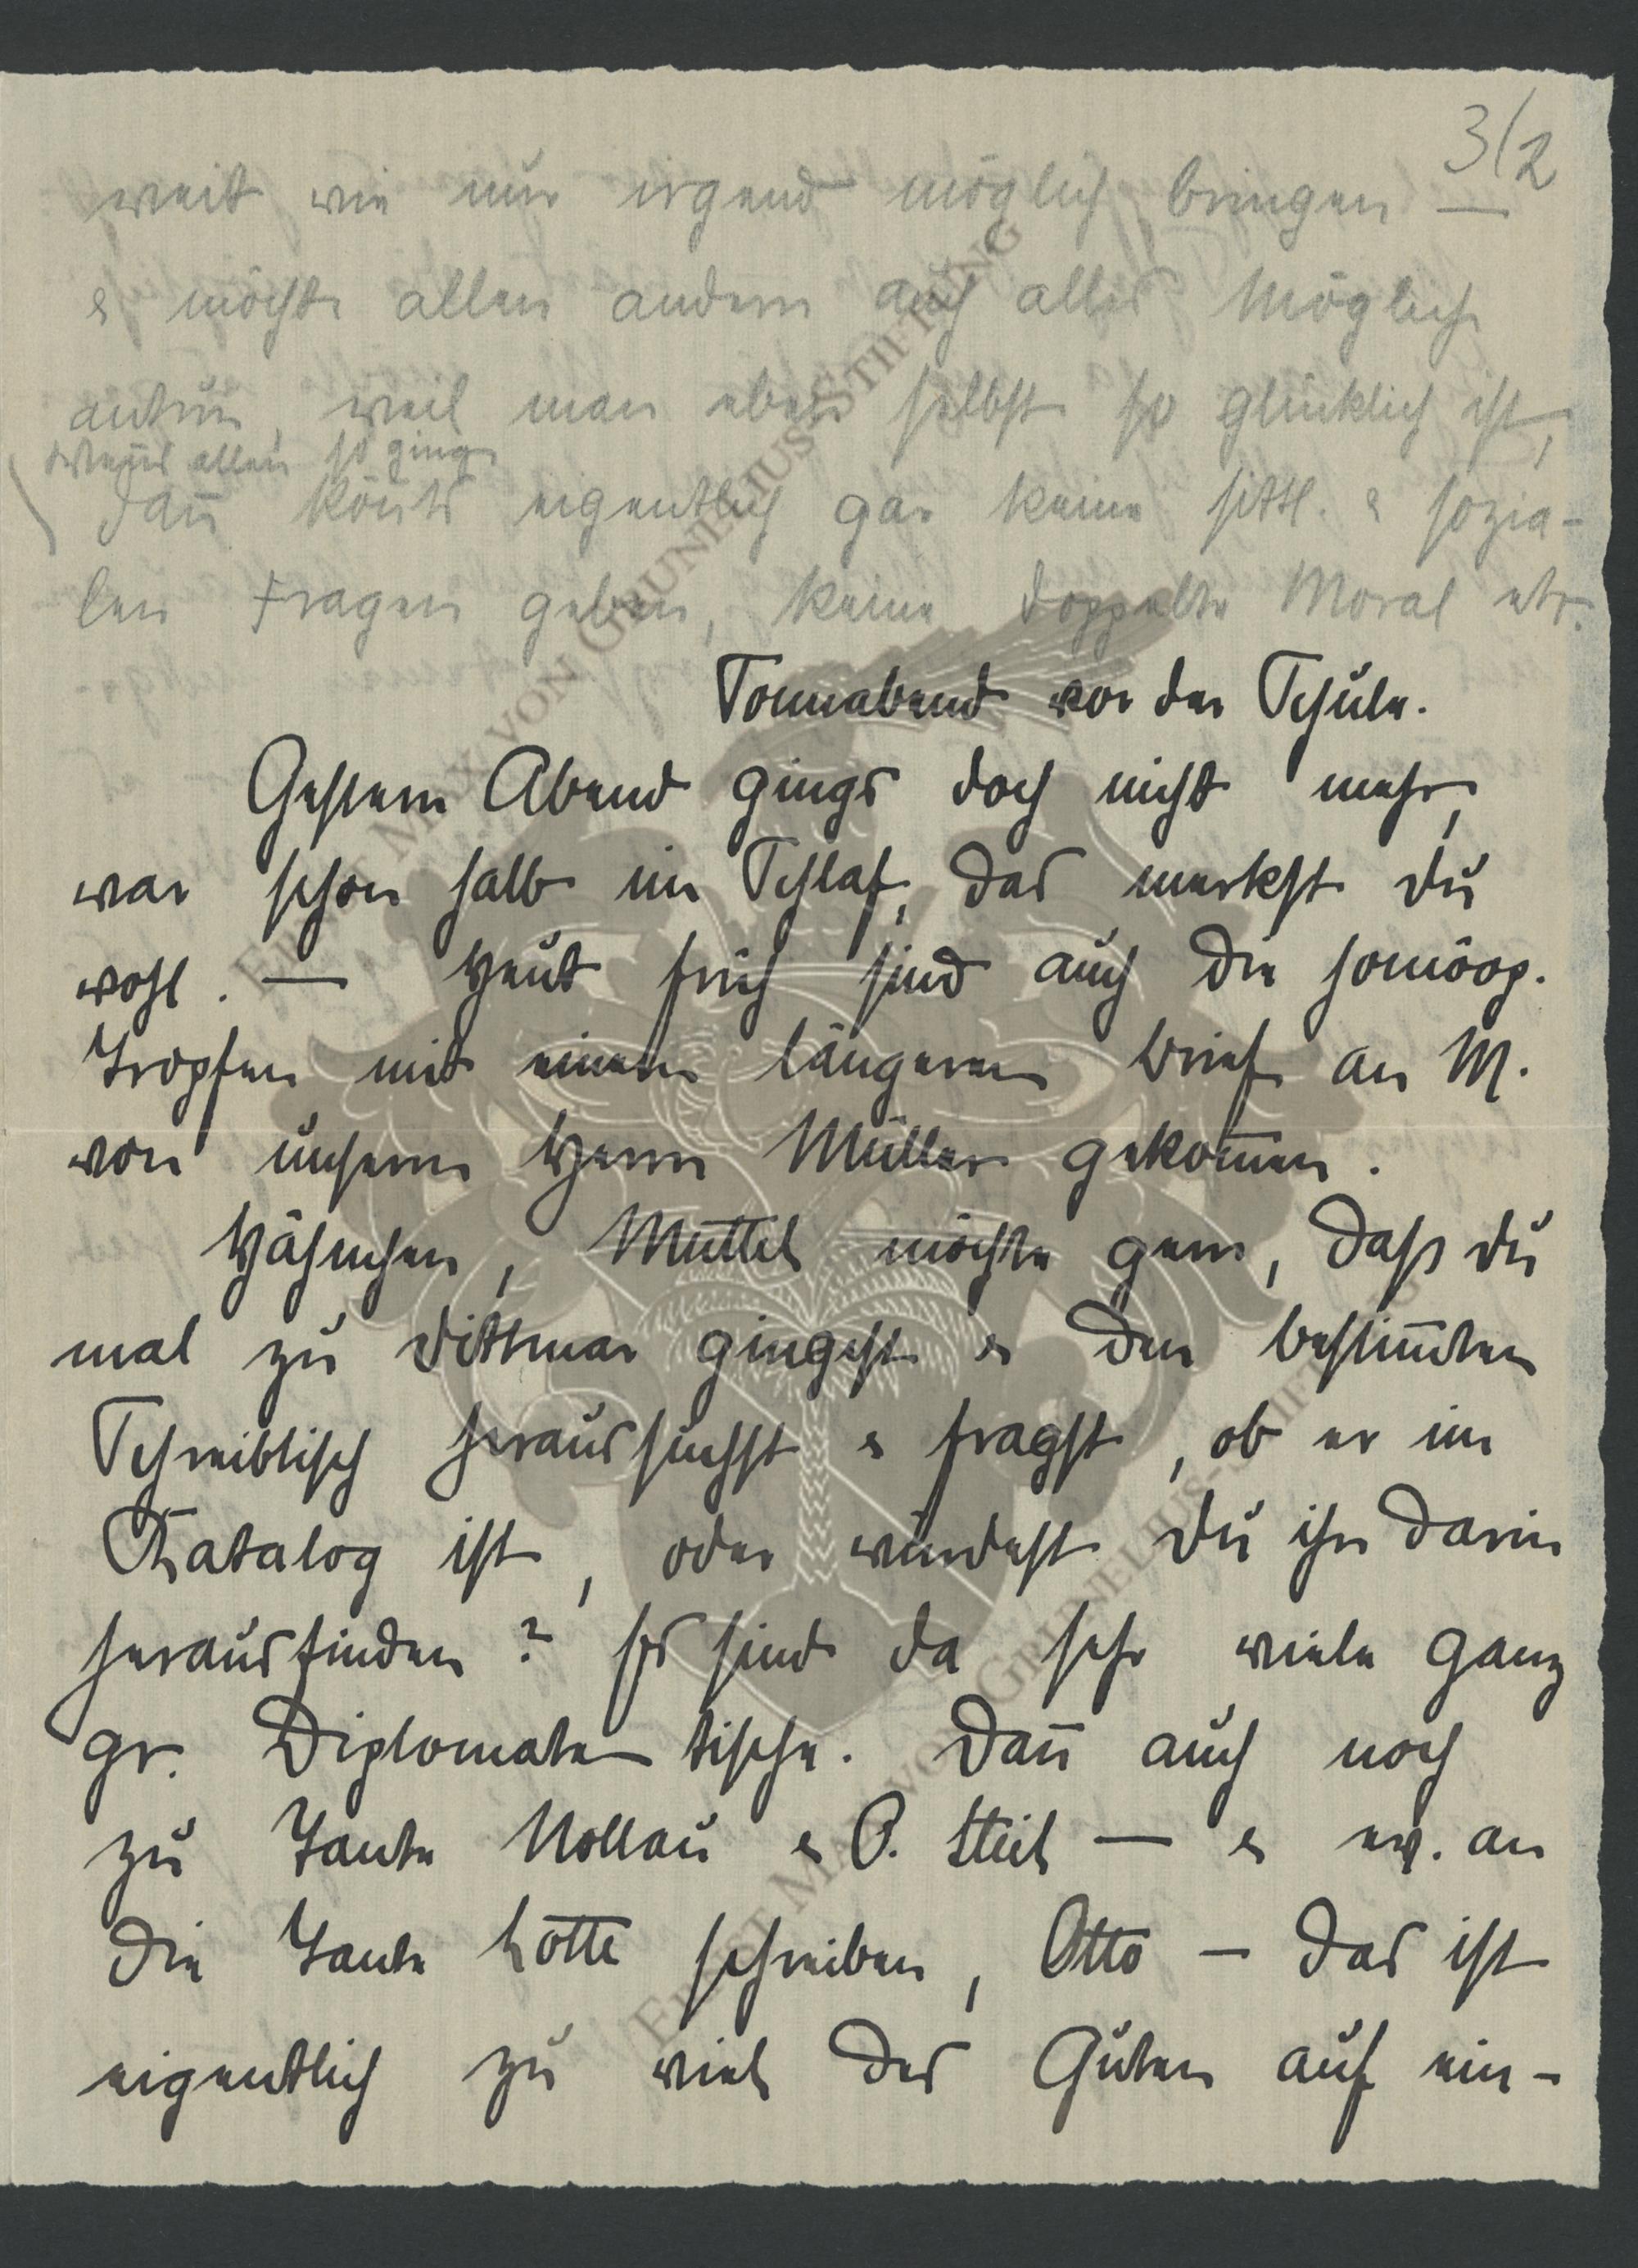 3/2
weit wie nur irgend möglich bringen —
& möchte allen andern auch alles Mögliche
antun, weil man eben selbst so glücklich ist,
wenns allen so ginge
dan̄ kön̄ts eigentlich gar keine sittl. & sozia-
len Fragen geben, keine doppelte Moral etc.
Sonnabend vor der Schule.
Gestern Abend gings doch nicht mehr,
war schon halb im Schlaf, das merkst Du
wohl. — Heut früh sind auch die homöop.
Tropfen mit einem längeren Brief an M.
von unserm Herrn Müller gekom̄en.
Hähnchen, Muttel möchte gern, daß Du
mal zu Dittmar gingest & den bestim̄ten
Schreibtisch heraussuchst & fragst, ob er im
Katalog ist, oder würdest Du ihn darin
herausfinden? Es sind da sehr viele ganz
gr. Diplomatentische. Dan̄ auch noch
zu Tante Nollau & O. — & ev. an
die Tante Lotte schreiben, Otto — das ist
eigentlich zu viel des Guten auf ein-
ERNST MAX VON GRUNELIUS-STIFTUNG
ERNST MAX VON GRUNELIUS-STIFTUNG